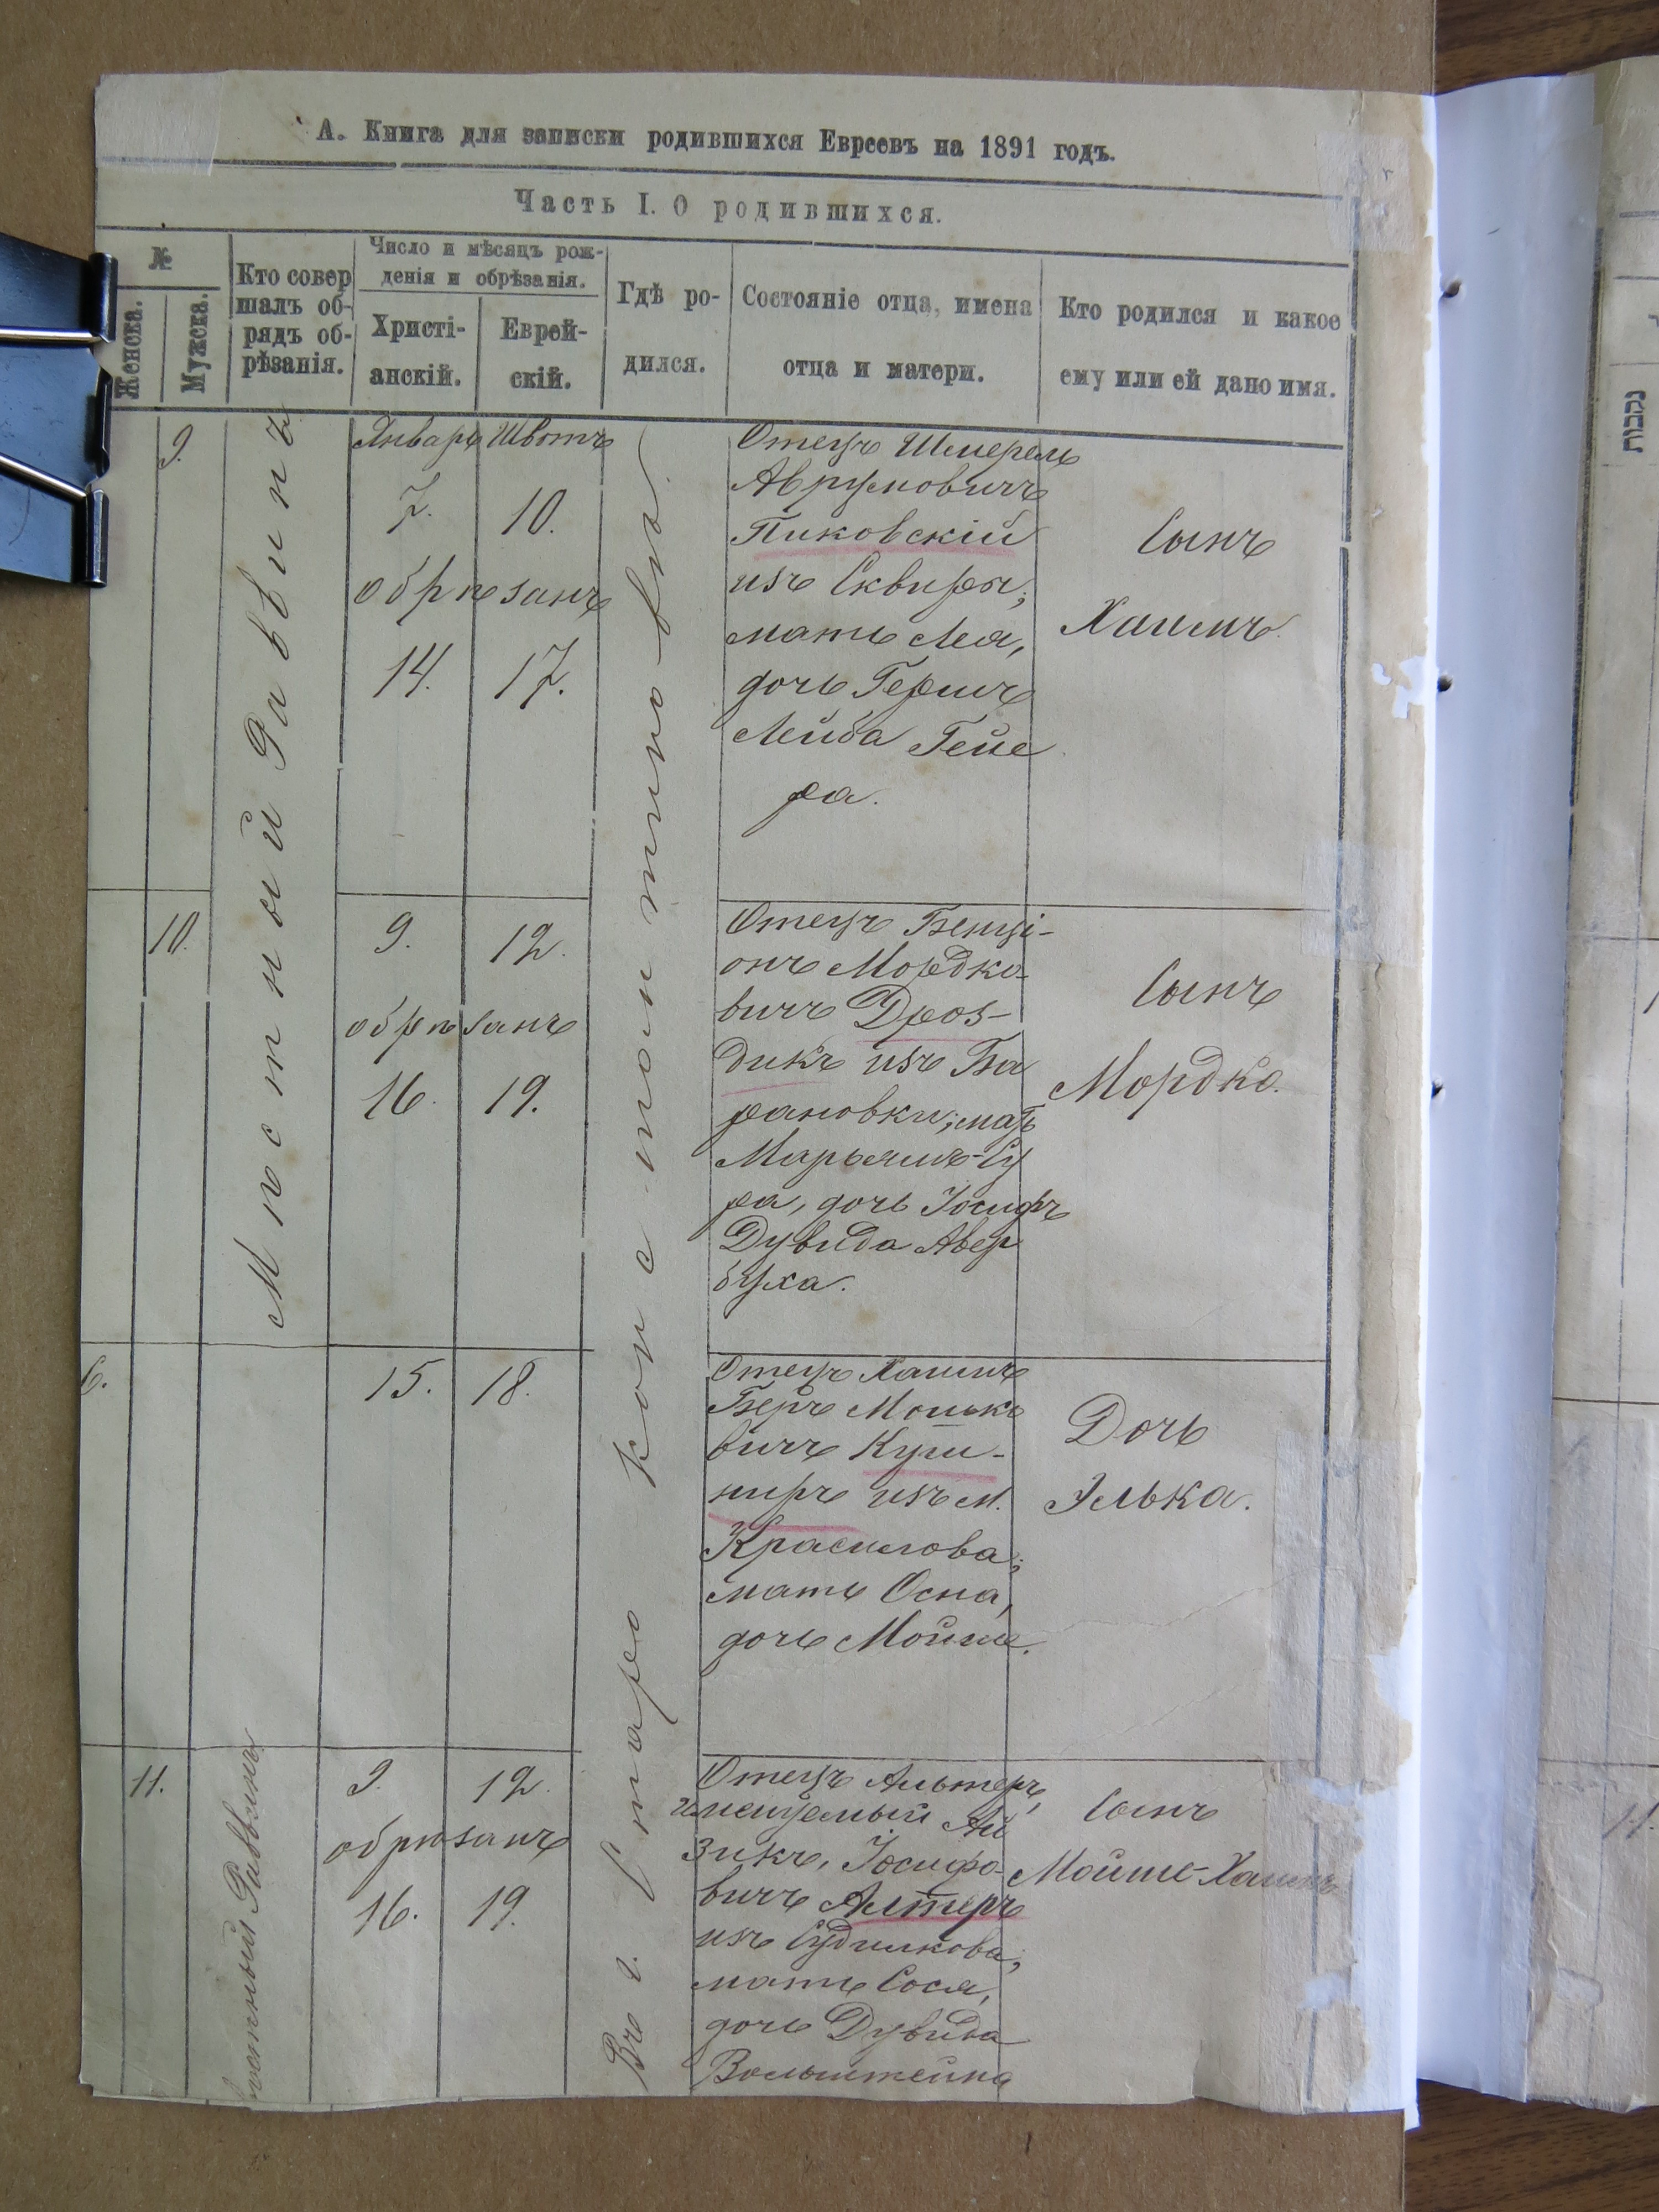 А. Книга для записки родившихся Евреевъ на 1891 годъ.
Часть I. О родившихся.
№
Женска.
Мужска.
Кто совер
шалъ об-
рядъ об-
рѣзанія.
Число и мѣсяцъ рож-
денія и обрѣзанія.
Христі-
анскій.
Еврей-
скій.
Гдѣ ро-
дился.
Состояніе отца, имена
отца и матери.
Кто родился и какое
ему или ей дано имя.
Мѣстный Раввинъ
Въ г. Старо константиновѣ.
9.
Январь Шватъ
7. 10.
обрѣзанъ
14. 17.
Отецъ Шмерель
Аврумовичъ
Пиковскій
изъ Сквиры;
мать Лея,
дочь Гершъ
Лейба Гейе
ра.
Сынъ
Хаимъ.
10.
9. 12.
обрѣзанъ
16. 19.
Отецъ Бенці-
онъ Мордко-
вичъ Дроз-
дикъ изъ Ба
рановки; мать
Марьямъ-Су
ра, дочь Іосифъ
Дувида Авер
буха.
Сынъ
Мордко.
6.
15. 18.
Отецъ Хаимъ
Беръ Мошко
вичъ Куш-
ниръ изъ м.
Красилова;
мать Осна,
дочь Мойше.
Дочь
Элька.
11.
Мѣстный Раввинъ
9. 12.
обрѣзанъ
16. 19.
Отецъ Альтеръ,
именуемый Ай
зикъ, Іосифо-
вичъ Алтеръ
изъ Судилкова;
мать Сося,
дочь Дувида
Вольштейна
Сынъ
Мойше-Хаимъ
נקבות